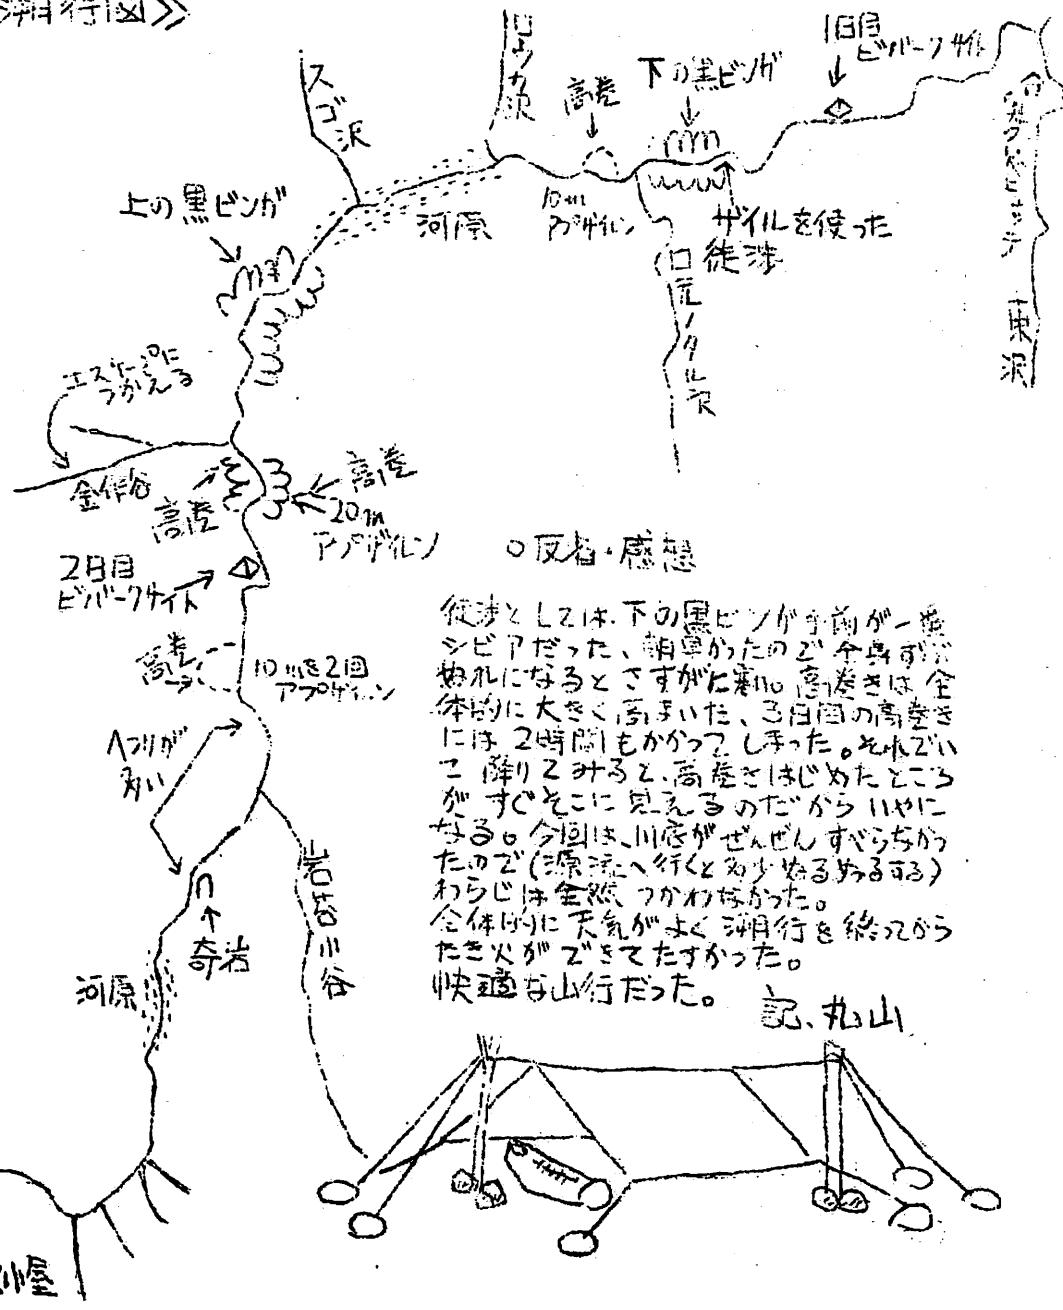 溯行図》
スゴ沢
高巻
下の黒ビンガ
1日目
ビバークサイト
上の黒ビンガ
河原
10m
アプザイレン
ザイルを使った
徒渉
口元ノタル沢
東沢
エスケープに
つかえる
金作谷
高巻
高巻
20m
アプザイレン
2日目
ビバークサイト
高巻
10mを2回
アプザイレン
ヘツリが
多い
岩苔小谷
奇岩
河原
小屋
○反省・感想
徒渉としては、下の黒ビンガ手前が一番
シビアだった、朝早かったので全身ずぶ
ぬれになるとさすがに寒い。高巻きは全
体的に大きく高まいた、3日目の高巻き
には2時間もかかってしまった。それでい
て降りてみると、高巻きはじめたところ
が、すぐそこに見えるのだからいやに
なる。今回は、川底がぜんぜんすべらなかっ
たので(源流へ行くと多少ぬるぬるする)
わらじは全然つかわなかった。
全体的に天気がよく溯行を終ってから
たき火ができてたすかった。
快適な山行だった。
記、丸山